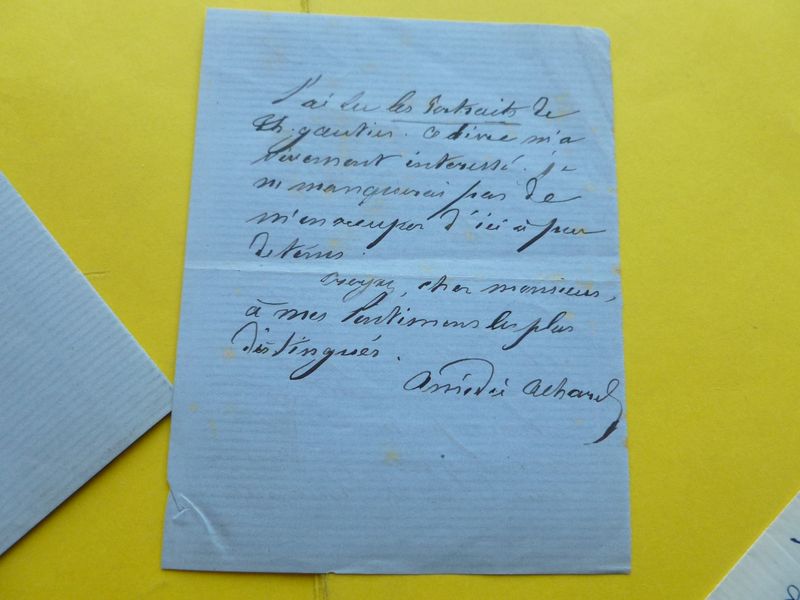 J'ai lu les Portraits de
Th. gautier. Ce livre m'a
vivement interessé. Je
ne manquerai pas de
m'en occuper d'ici à peu
de tems.
Croyez, cher monsieur,
à mes sentimens les plus
distingués.
Amédée Achard